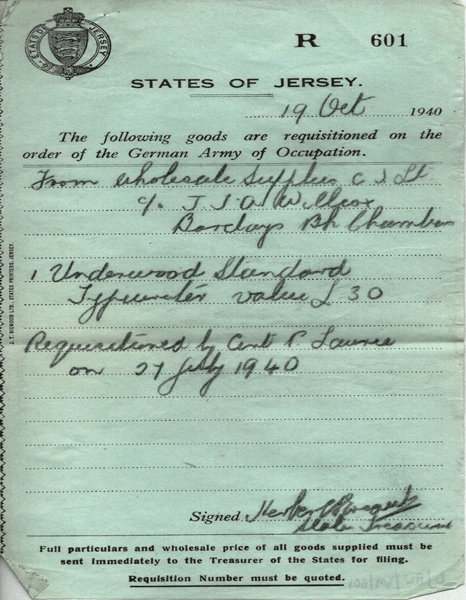 STATES OF JERSEY
R 601
STATES OF JERSEY.
19 Oct 1940
The following goods are requisitioned on the
order of the German Army of Occupation.
From Wholesale Supplies C I Lt
c/o J J A Willcox
Barclays Bk Chambers
1 Underwood Standard
Typwriter value £30
Requisitioned by Cent P
on 27 July 1940
Signed Herbert
States Treasurer
Full particulars and wholesale price of all goods supplied must be
sent immediately to the Treasurer of the States for filing.
Requisition Number must be quoted.
STATES PRINTERS, JERSEY.